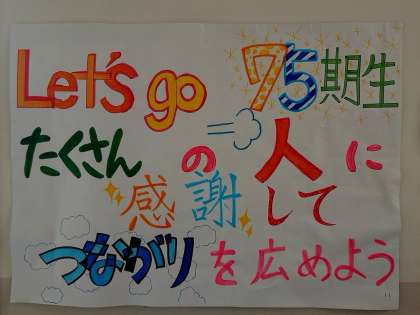 Let's go 75期生
たくさんの人に
感謝して
つながりを広めよう